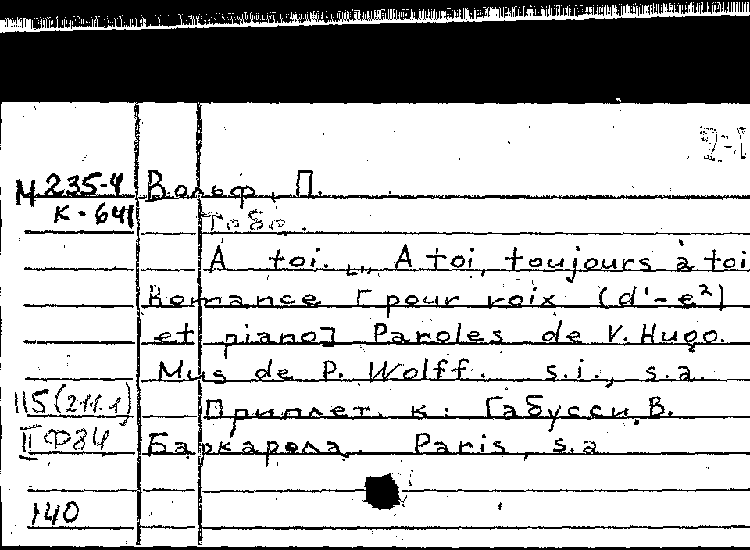 2-1
М 235-4 Вольф, П.
К-641 Тебе.
A toi. „ A toi, toujours à toi
Romance [pour voix (d'-e²)
et piano] Paroles de V. Hugo.
Mus de P. Wolff. s.i., s.a.
115(211.1) Приплет. к: Габусси, В.
II Ф84 Баркарола. Paris, s.a
140